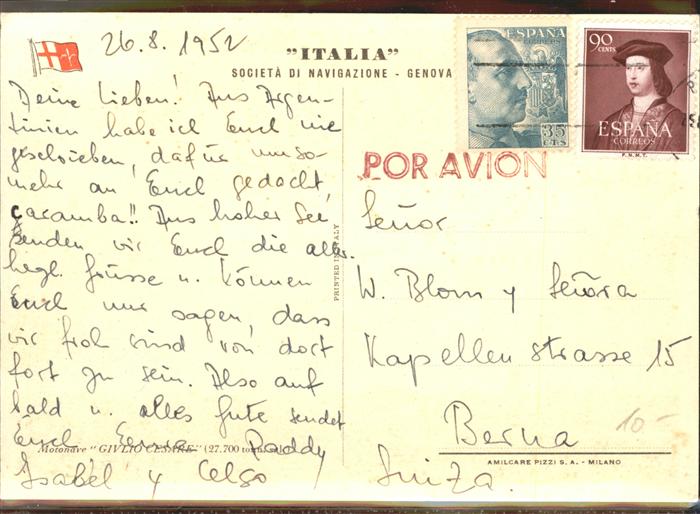 26.8.1952
"ITALIA"
SOCIETÀ DI NAVIGAZIONE - GENOVA
ESPAÑA
CORREOS
35
CTS
90
CENTS
ESPAÑA
CORREOS
F.N.M.T.
POR AVION
Meine Lieben! Aus Argen-
tinien habe ich Euch nie
geschrieben, dafür umso-
mehr an Euch gedacht,
caramba!! Aus hoher See
senden wir Euch die aller-
hzgl. Grüsse u. können
Euch nur sagen, dass
wir froh sind von dort
fort zu sein. Also auf
bald u. alles Gute sendet
Euch Daddy
Isabél y Celso
Motonave "GIULIO CESARE" (27.700
PRINTED IN ITALY
Señor
W. Blom y Señora
Kapellenstrasse 15
Berna
Suiza.
10-
AMILCARE PIZZI S.A. - MILANO